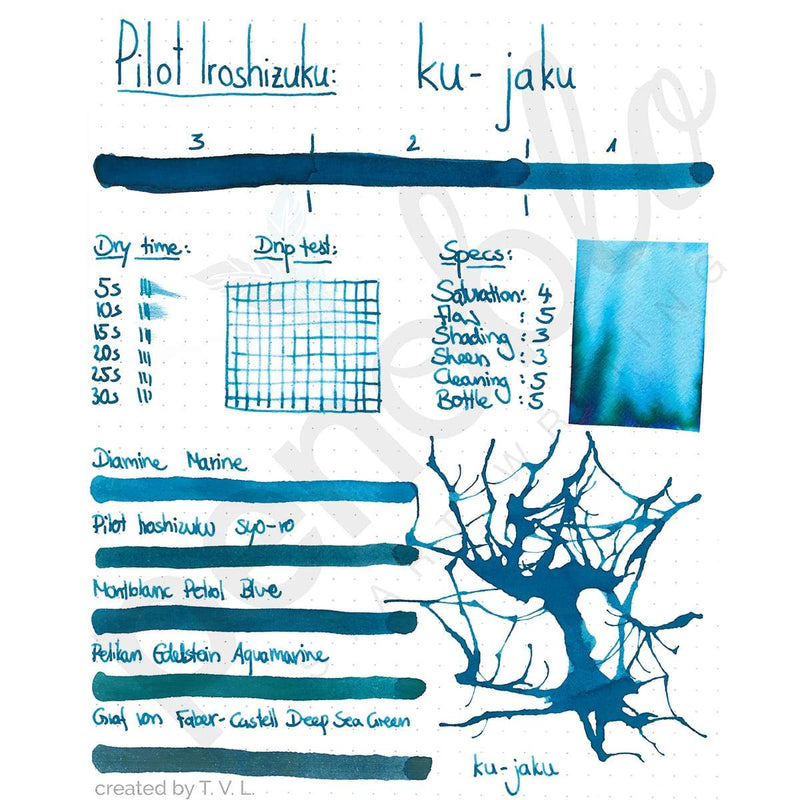 Pilot Iroshizuku: ku-jaku
3 2 1
Dry time:
5s
10s
15s
20s
25s
30s
Drip test:
Specs:
Saturation: 4
flow : 5
Shading : 3
Sheen : 3
Cleaning : 5
Bottle : 5
Diamine Marine
Pilot Iroshizuku syo-ro
Montblanc Petrol Blue
Pelikan Edelstein Aquamarine
Graf von Faber-Castell Deep Sea Green
ku-jaku
created by T. V. L.
penoblo